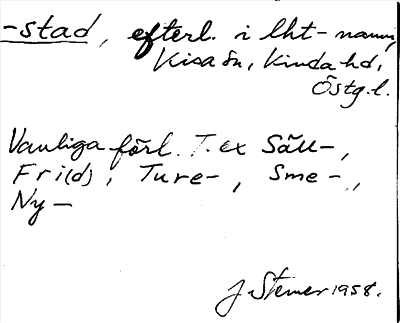 -stad, efterl. i lht-namn,
Kisa sn, Kinda hd,
Östg.l.
Vanliga förl. T. ex Säll-,
Fri(d), Ture-, Sme-,
Ny-
J. Stenner 1958.